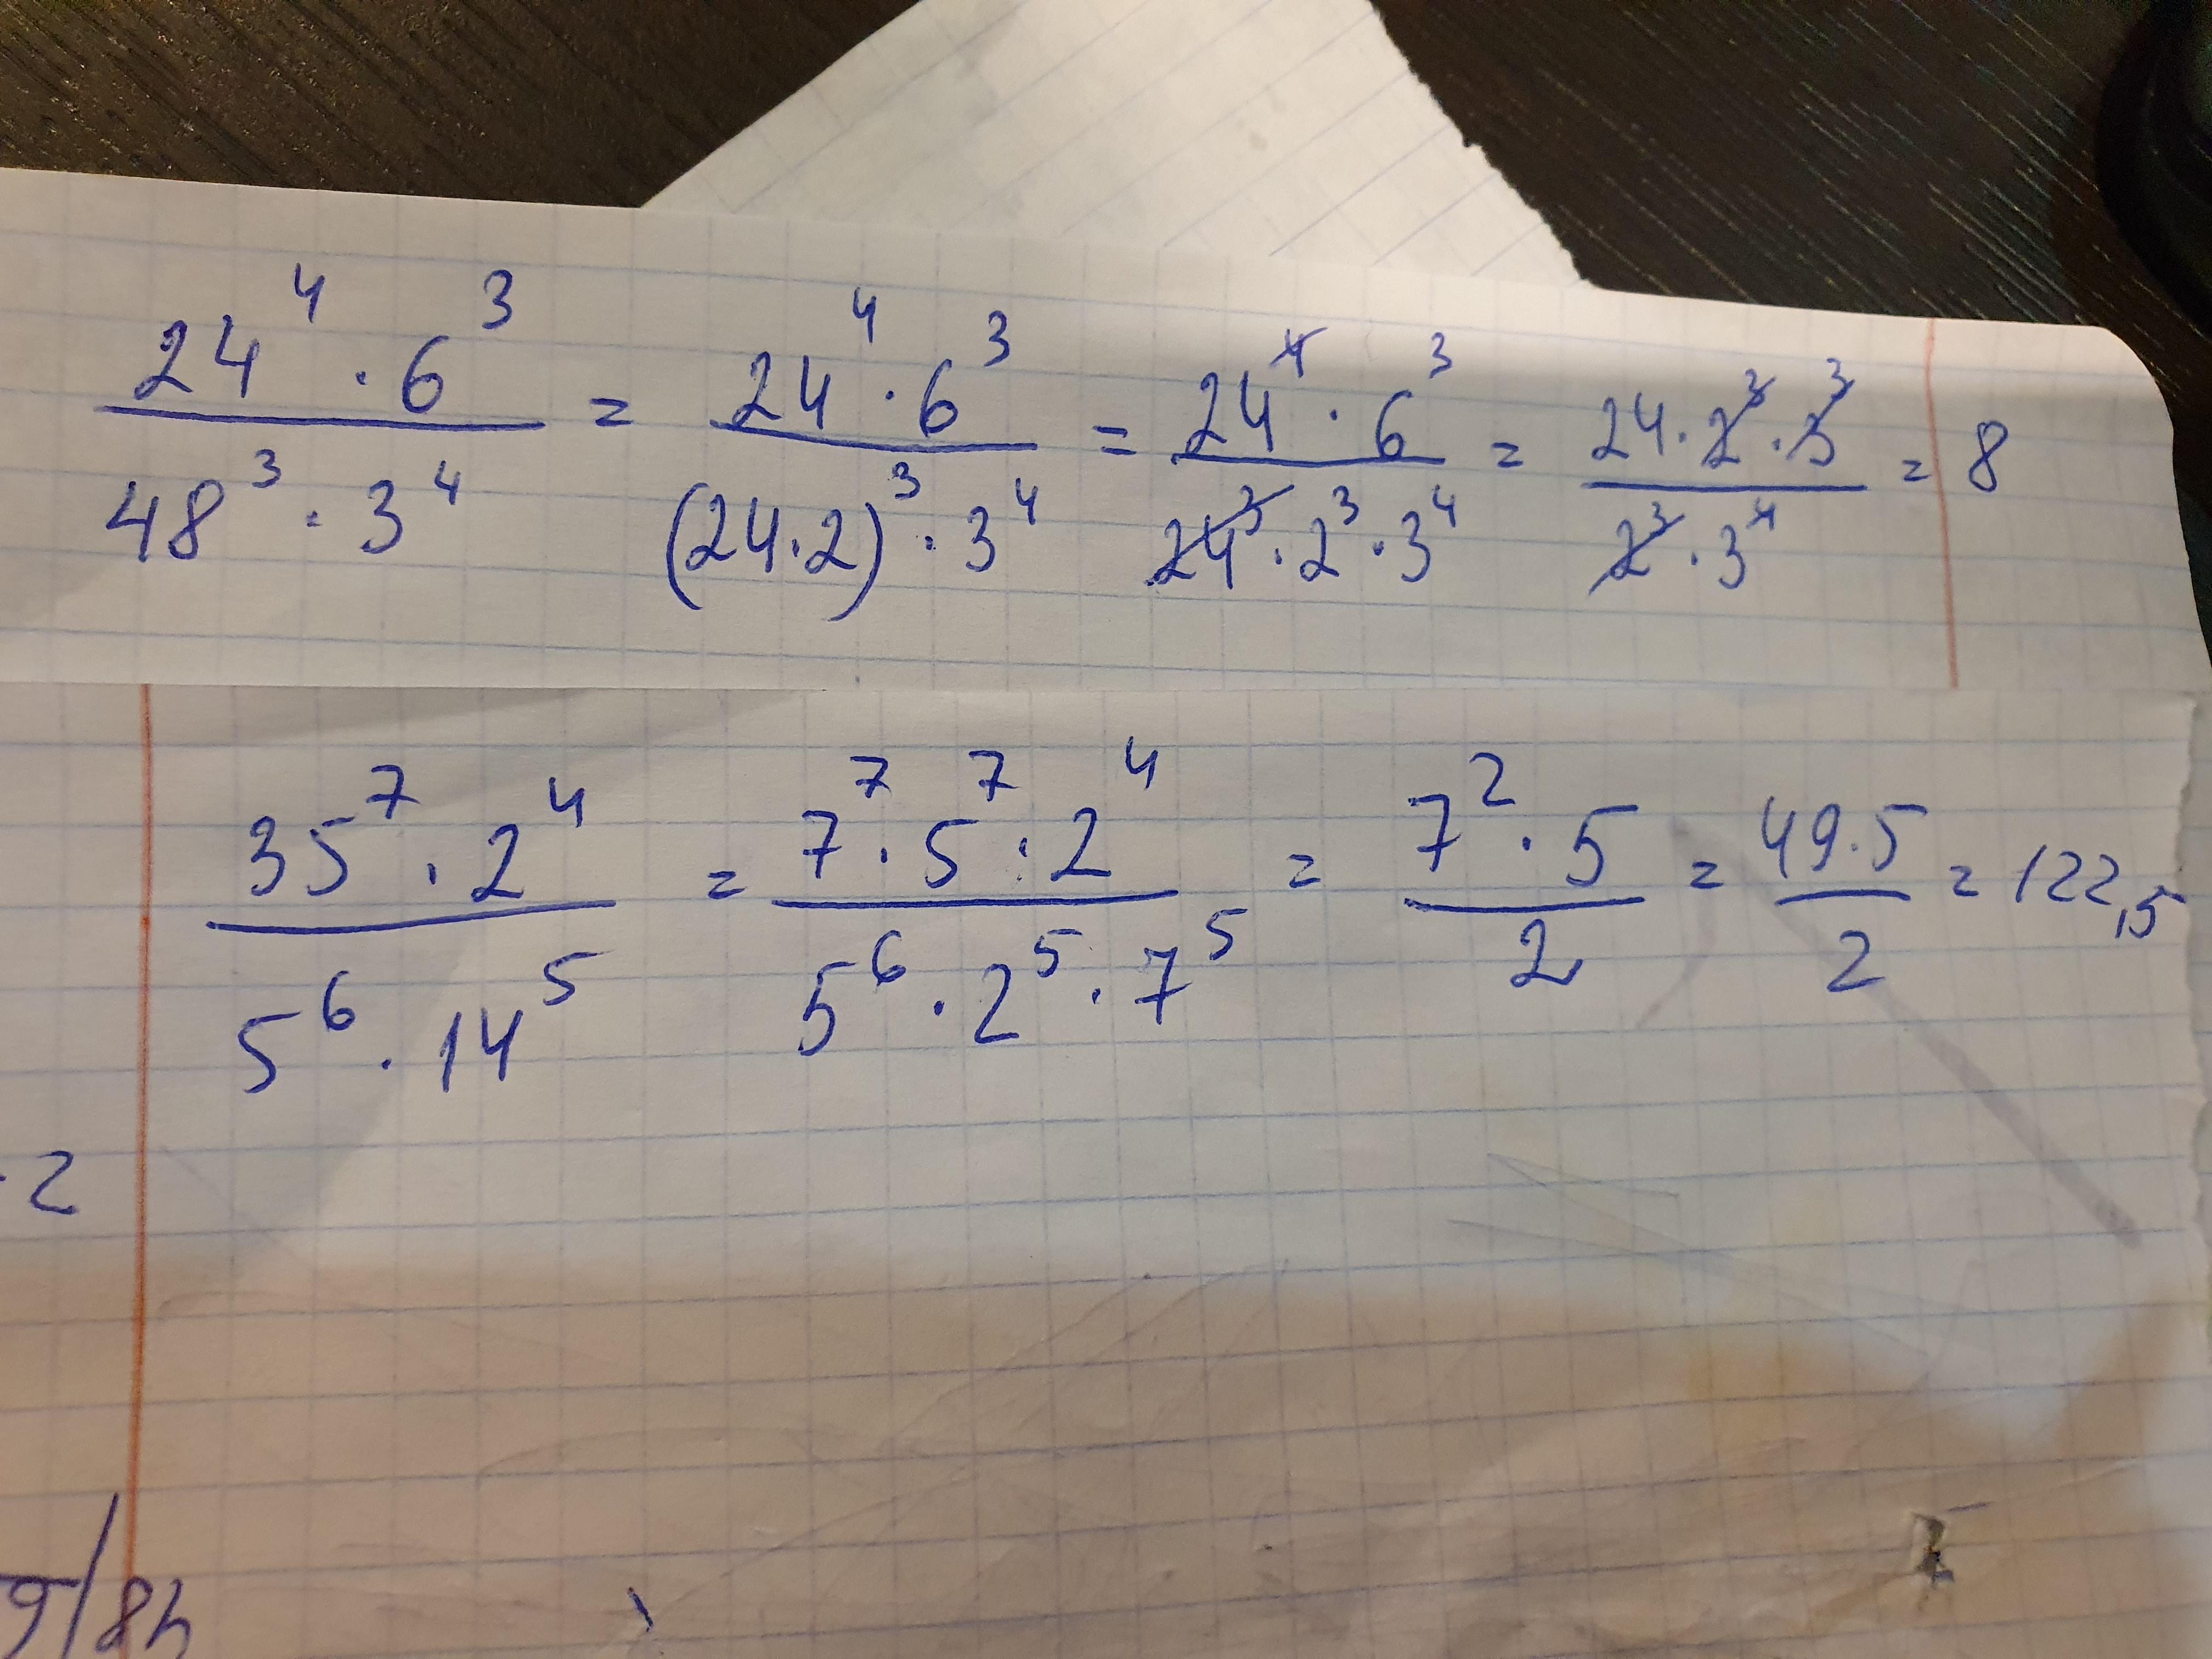 24⁴ · 6³ / 48³ · 3⁴ = 24⁴ · 6³ / (24·2)³ · 3⁴ = 24⁴ · 6³ / 24³ · 2³ · 3⁴ = 24 · 2³ · 3³ / 2³ · 3⁴ = 8
35⁷ · 2⁴ / 5⁶ · 14⁵ = 7⁷ · 5⁷ · 2⁴ / 5⁶ · 2⁵ · 7⁵ = 7² · 5 / 2 = 49·5 / 2 = 122,5
·2